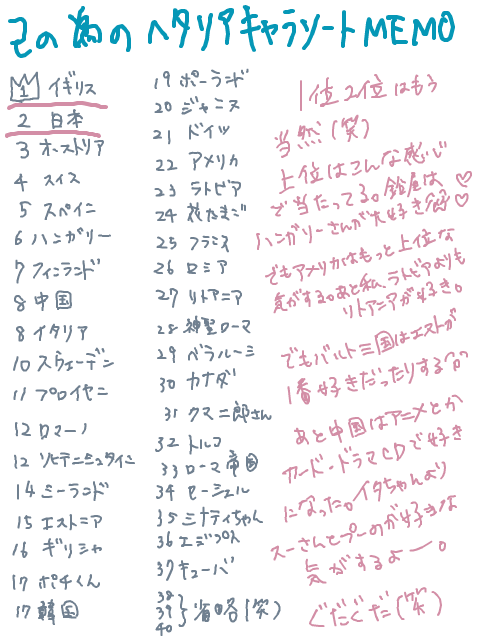 己の為のヘタリアキャラソートMEMO
1 イギリス
2 日本
3 オーストリア
4 スイス
5 スペイン
6 ハンガリー
7 フィンランド
8 中国
8 イタリア
10 スウェーデン
11 プロイセン
12 ロマーノ
12 リヒテンシュタイン
14 シーランド
15 エストニア
16 ギリシャ
17 ポチくん
17 韓国
19 ポーランド
20 ジャンヌ
21 ドイツ
22 アメリカ
23 ラトビア
24 花たまご
25 フランス
26 ロシア
27 リトアニア
28 神聖ローマ
29 ベラルーシ
30 カナダ
31 クマ二郎さん
32 トルコ
33 ローマ帝国
34 セーシェル
35 ミナティちゃん
36 エジプト
37 キューバ
38
39 省略(笑)
40
1位2位はもう
当然(笑)
上位はこんな感じ
で当たってる。鈴屋は♡
ハンガリーさんが大好き♡
でもアメリカはもっと上位な
気がする。あと私、ラトビアよりも
リトアニアが好き。
でもバルト三国はエストが
1番好きだったりする^^
あと中国はアニメとか
カード・ドラマCDで好き
になった。イタちゃんより
スーさんとプーのが好きな
気がするよー。
ぐだぐだ(笑)